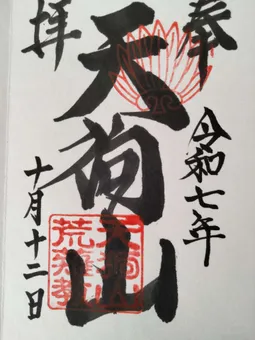 奉拝
令和七年
天狗山
十月十二日
天狗山
荒薙教